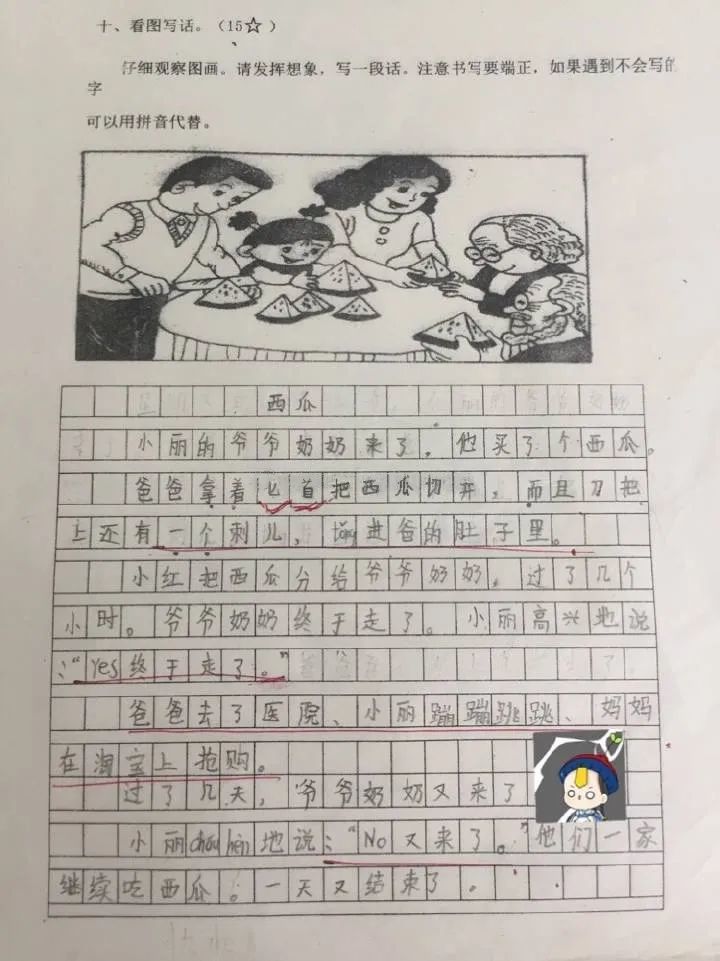 十、看图写话。(15☆)
仔细观察图画。请发挥想象，写一段话。注意书写要端正，如果遇到不会写的
字
可以用拼音代替。
西瓜
小丽的爷爷奶奶来了。他买了个西瓜。
爸爸拿着匕首把西瓜切开，而且刀把
上还有一个刺儿，进爸的肚子里。
小红把西瓜分给爷爷奶奶，过了几个
小时。爷爷奶奶终于走了。小丽高兴地说
：“Yes终于走了。”
爸爸去了医院、小丽蹦蹦跳跳、妈妈
在淘宝上抢购。
过了几天，爷爷奶奶又来了
小丽地说：“No又来了。”他们一家
继续吃西瓜。一天又结束了。